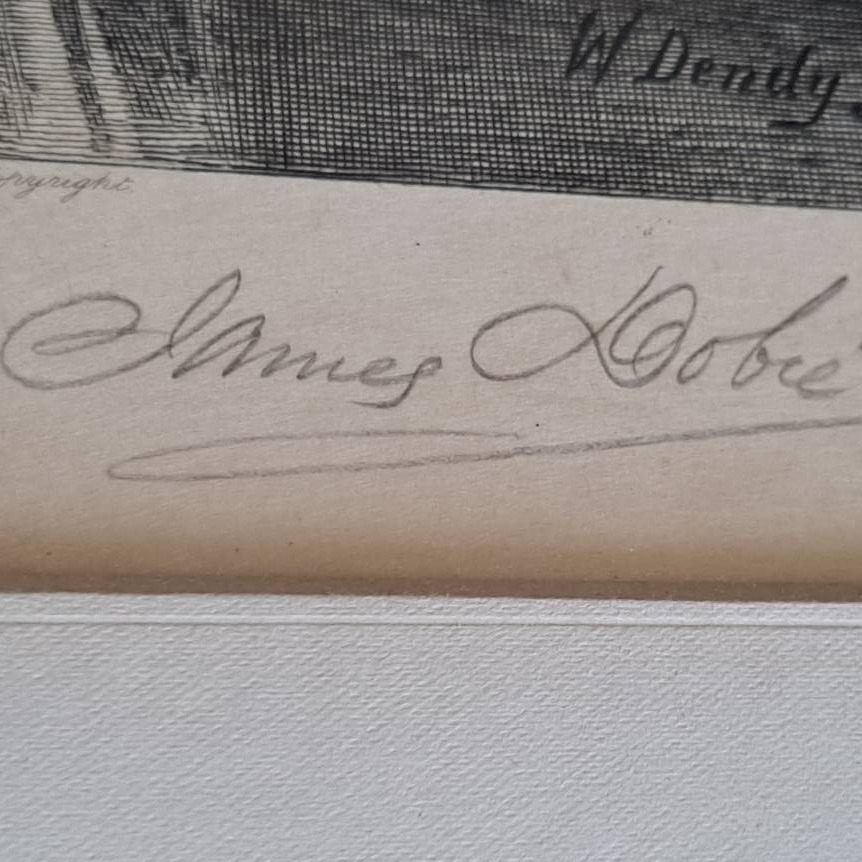 W Dendy
opyright.
James Dobie